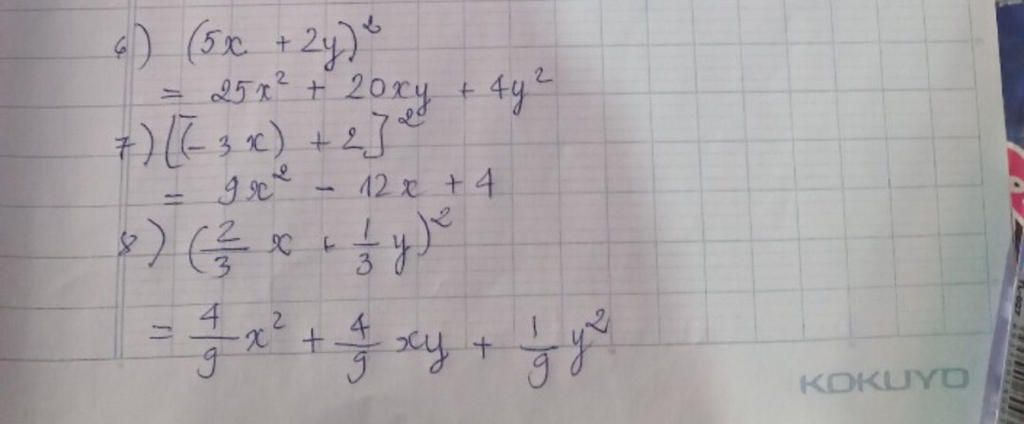 6) (5x + 2y)²
= 25x² + 20xy + 4y²
7) [(-3x) + 2]²
= 9x² - 12x + 4
8) (2/3 x + 1/3 y)²
= 4/9 x² + 4/9 xy + 1/9 y²
KOKUYO